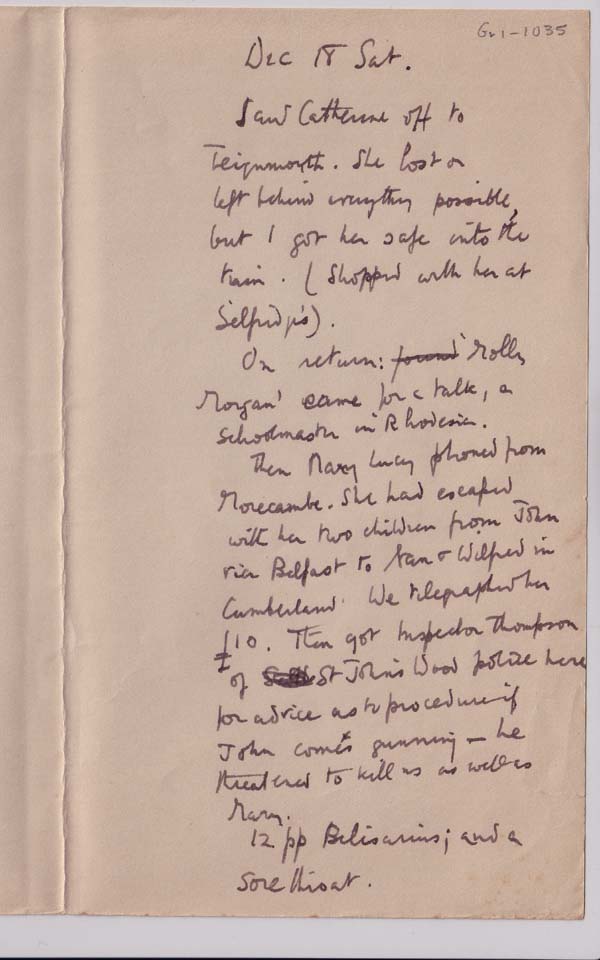 Gr1-1035
Dec 18 Sat.
Saw Catherine off to
Teignmouth. She lost or
left behind everything possible,
but I got her safe into the
train. (Shopped with her at
Selfridge's).
On return: found Molly
Morgan came for a talk, a
schoolmaster in Rhodesia.
Then Mary Lucy phoned from
Morecambe. She had escaped
with her two children from John
via Belfast to Nan & Wilfred in
Cumberland. We telegraphed her
£10. I Then got Inspector Thompson
of St John's Wood police here
for advice as to procedure if
John comes gunning – he
threatened to kill us as well as
Mary.
12 pp Belisarius; and a
sore throat.